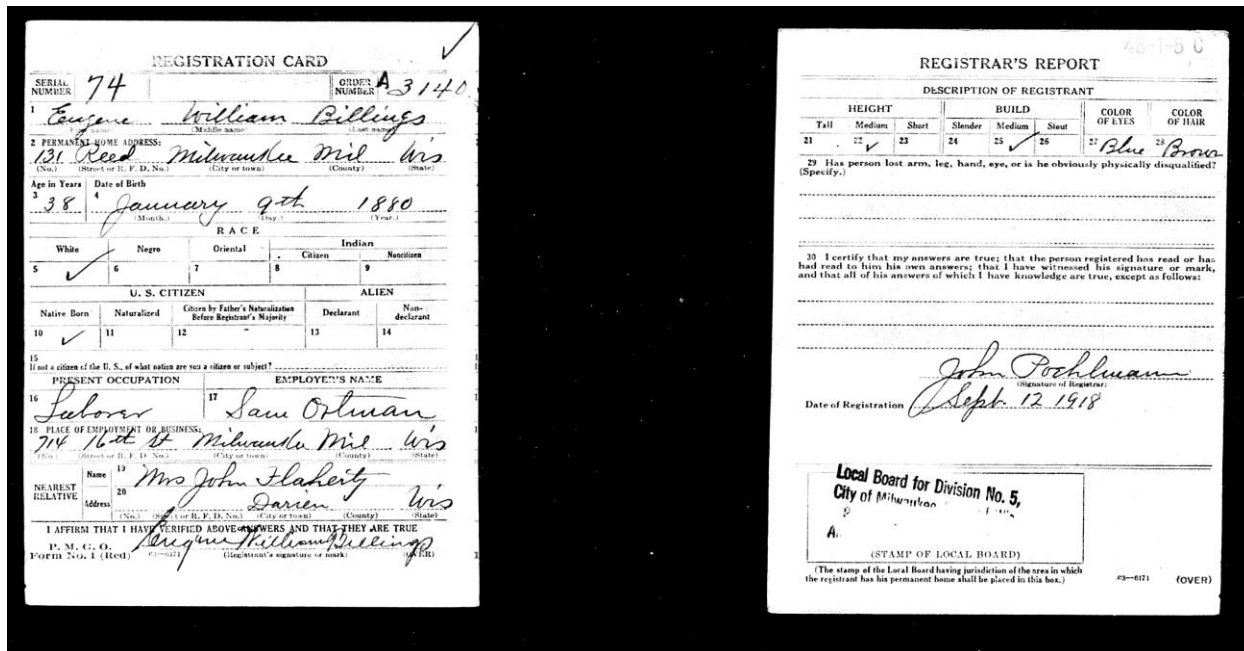 REGISTRATION CARD
SERIAL NUMBER 74 ORDER NUMBER A 3140
1 Eugene William Billings
(First name) (Middle name) (Last name)
2 PERMANENT HOME ADDRESS:
131 Reed Milwaukee Mil Wis
(No.) (Street or R. F. D. No.) (City or town) (County) (State)
Age in Years Date of Birth
3 38 4 January 9th 1880
(Month.) (Day.) (Year.)
RACE
White Negro Oriental Indian
Citizen Noncitizen
5 ✓ 6 7 8 9
U. S. CITIZEN ALIEN
Native Born Naturalized Citizen by Father's Naturalization Before Registrant's Majority Declarant Non-declarant
10 ✓ 11 12 13 14
15
If not a citizen of the U. S., of what nation are you a citizen or subject?
PRESENT OCCUPATION EMPLOYER'S NAME
16 Laborer 17 Sam Ortman
18 PLACE OF EMPLOYMENT OR BUSINESS:
714 16th St Milwaukee Mil Wis
(No.) (Street or R. F. D. No.) (City or town) (County) (State)
NEAREST RELATIVE Name 19 Mrs John Flaherty
Address 20 Darien Wis
(No.) (Street or R. F. D. No.) (City or town) (County) (State)
I AFFIRM THAT I HAVE VERIFIED ABOVE ANSWERS AND THAT THEY ARE TRUE
P. M. G. O.
Form No. 1 (Red) 03—6171 Eugene William Billings
(Registrant's signature or mark) (OVER)
48-1-5 C
REGISTRAR'S REPORT
DESCRIPTION OF REGISTRANT
HEIGHT BUILD COLOR OF EYES COLOR OF HAIR
Tall Medium Short Slender Medium Stout
21 22 ✓ 23 24 25 ✓ 26 27 Blue 28 Brown
29 Has person lost arm, leg, hand, eye, or is he obviously physically disqualified?
(Specify.)
30 I certify that my answers are true; that the person registered has read or has
had read to him his own answers; that I have witnessed his signature or mark,
and that all of his answers of which I have knowledge are true, except as follows:
John Pochlmann
(Signature of Registrar)
Date of Registration Sept. 12 1918
Local Board for Division No. 5,
City of Milwaukee
A.
(STAMP OF LOCAL BOARD)
(The stamp of the Local Board having jurisdiction of the area in which
the registrant has his permanent home shall be placed in this box.)
03—6171 (OVER)